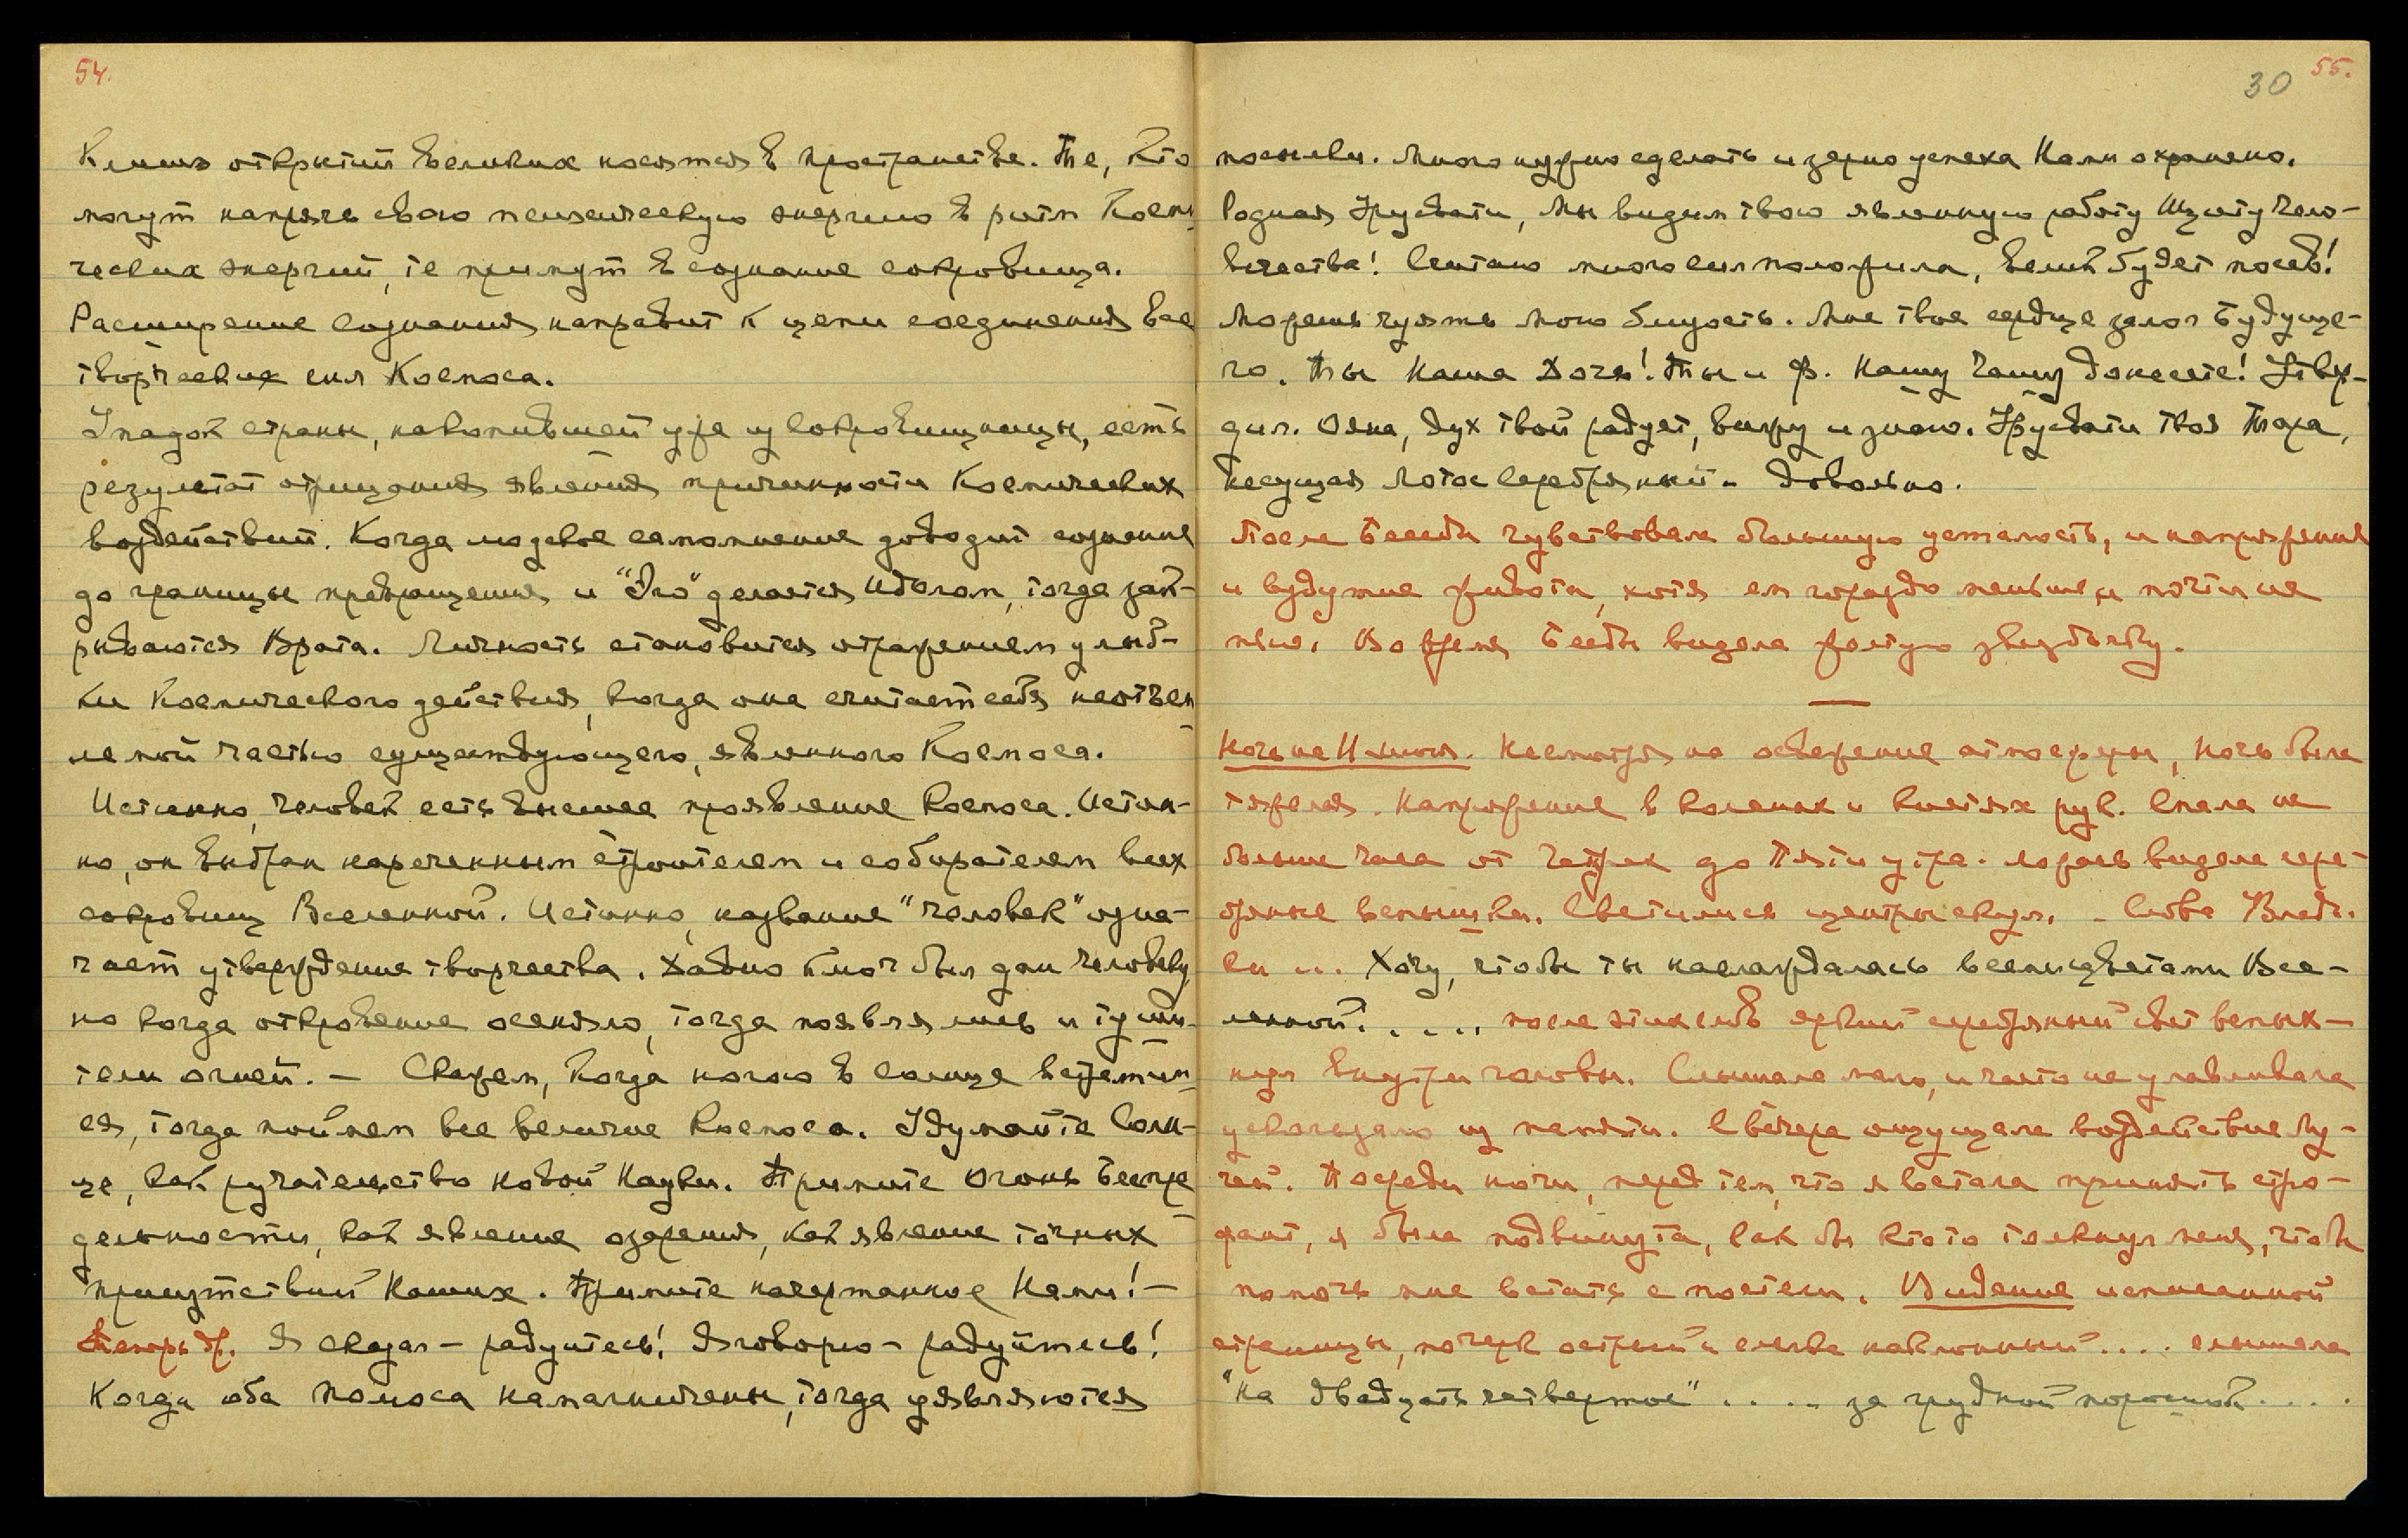 54.
Ключи открытий великих носятся в пространстве. Те, кто
могут напрячь свою психическую энергию в ритм Косми-
ческих энергий, те примут в сознание сокровища.
Расширение сознания направит к цепи соединения все
творческих сил Космоса.
Упадок страны, накопившей уже из сокровищницы, есть
результат отрицания явления причинности Космических
воздействий. Когда людское самомнение доводит сознание
до границы превращения и "Эго" делается идолом, тогда зак-
рываются Врата. Личность становится отражением улыб-
ки Космического действия, когда она считает себя неотъем
лемой частью существующего, явленного Космоса.
Истинно, человек есть высшее проявление Космоса. Истин-
но, он выбран нареченным строителем и собирателем всех
сокровищ Вселенной. Истинно, название "человек" озна-
чает утверждение творчества. Давно ключ был дан человеку,
но когда откровение осеняло, тогда появлялись и туши-
тели огней. — Скажем, когда ногою в солнце встретим-
ся, тогда поймем все величие Космоса. Думайте Солн-
це, как ручательство новой Науки. Примите Огонь Беспре
дельности, как явление озарения, как явление точных
присутствий Наших. Примите начертанное Нами! —
Теперь др. Я сказал — радуйтесь! Я говорю — радуйтесь!
Когда оба полюса намагничены, тогда уявляются
30 55.
посылки. Много нужно сделать и зерно успеха Нами охранено.
Родная Урусвати, Мы видим твою явленную работу Щиту Чело-
вечества! Считаю много сил положила, велик будет посев!
Можешь чуять мою близость. Мне твое сердце залог Будуще-
го. Ты Наша Дочь! Ты и Ф. Нашу Чашу донесете! Утвер-
дил. Ояна, дух твой радует, вижу и знаю. Урусвати твоя Тара,
несущая Лотос Серебряный. Довольно.
После Беседы чувствовала большую усталость, и напряжение
и вздутие живота, хотя ем гораздо меньше и почти не
пью. Во время Беседы видела желтую звезду.
Ночь на Несмотря на освежение атмосферы, ночь была
тяжелая. Напряжение в коленях и кистях рук. Спала не
больше часа от четырех до пяти утра. видела сере-
бряные вспышки. Светились центры скул. — Слова Влады-
ки ... Хочу, чтобы ты наслаждалась всеми цветами Все-
ленной! . . . . после этих слов яркий серебряный свет вспых-
нул внутри головы. Слышала мало, и часто не улавливала
ускользало из памяти. С вечера ощущала воздействие Лу-
чей. Посреди ночи, перед тем, что я встала принять стро-
фант, я была подвинута, как бы кто то толкнул меня, чтобы
помочь мне встать с постели. Видение исписанной
страницы, почерк острый и слегка наклонный .... слышала
"на двадцать четвертое" . . . . за грудной порошок . . . .